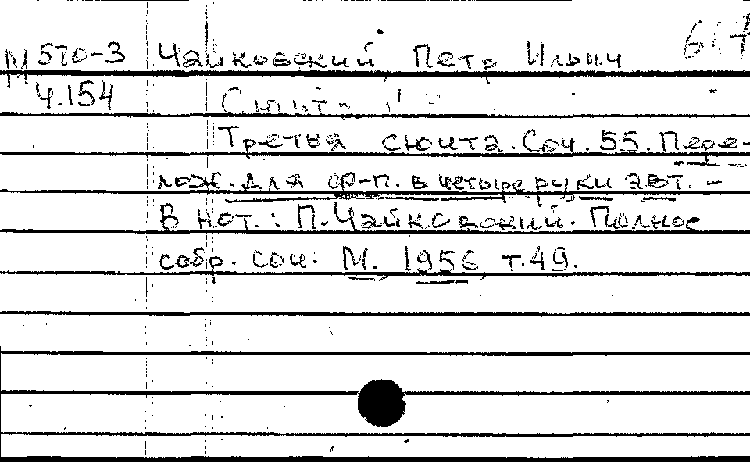 М 570-3 Чайковский, Петр Ильич
Ч.154
Третья сюита. Соч. 55. Пере-
лож. для ф-п. в четыре руки авт. -
В нот.: П. Чайковский. Полное
собр. соч. М. 1956, т. 49.